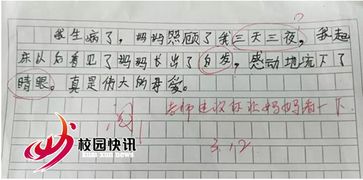 我生病了，妈妈照顾了我三天三夜，我起
床以后看见了妈妈长出了白发，感动地流下了
睛眼。真是伟大的母爱。
阅
老师建议你让妈妈看一下
3.12
校园快讯
kuai xun news